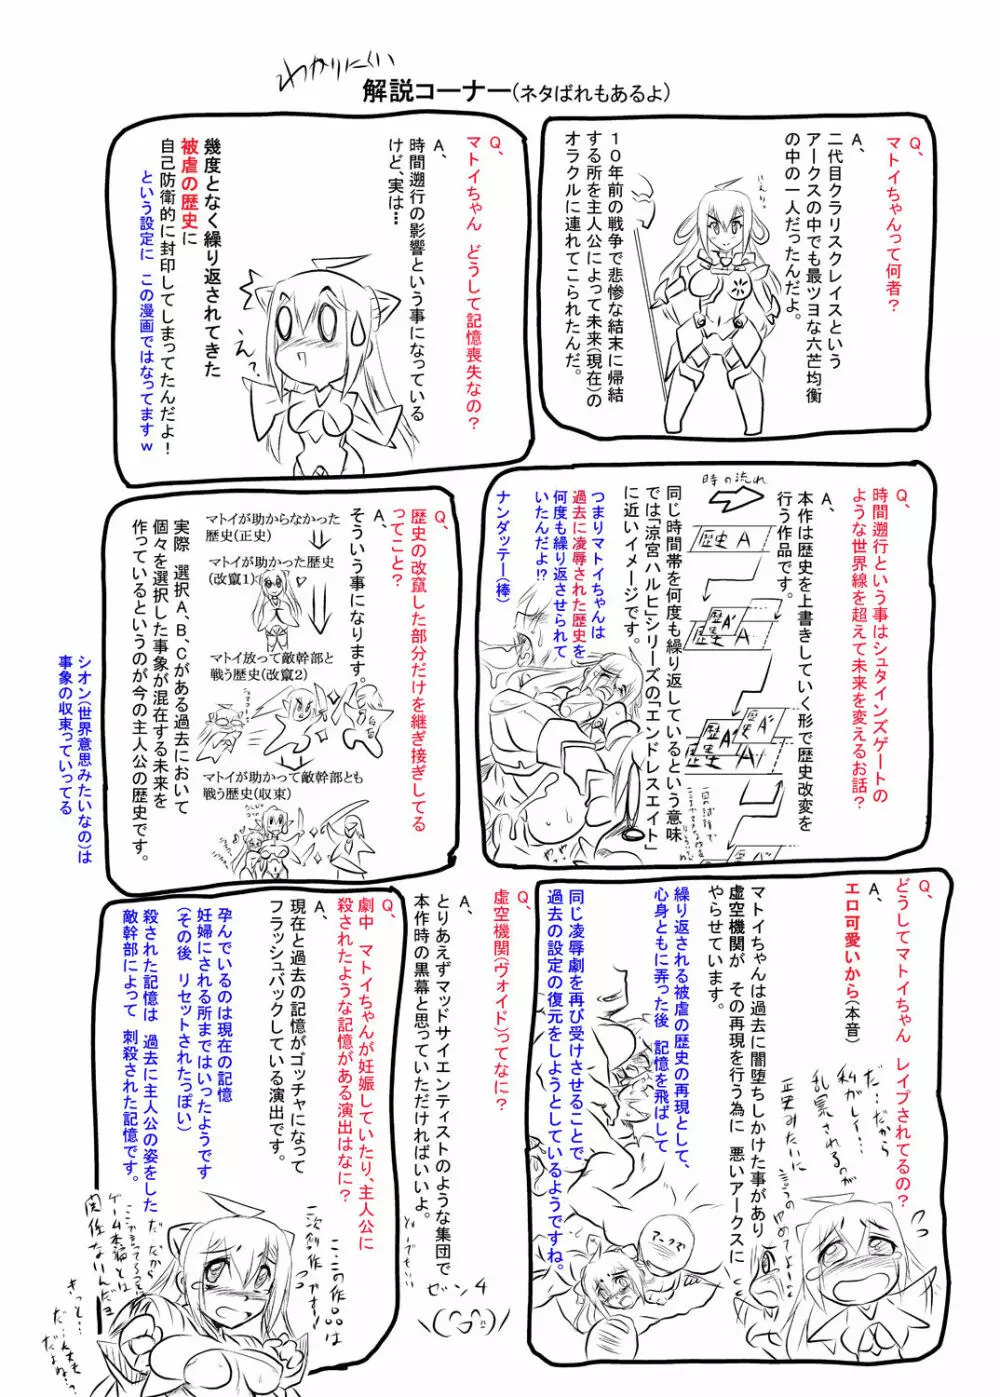 わかりにくい
解説コーナー（ネタばれもあるよ）
Q、
マトイちゃんって何者？
A、
二代目クラリスクレイスという
アークスの中でも最ツヨな六芒均衡
の中の一人だったんだよ。
１０年前の戦争で悲惨な結末に帰結
する所を主人公によって未来（現在）の
オラクルに連れてこられたんだ。
Q、
マトイちゃん　どうして記憶喪失なの？
A、
時間遡行の影響という事になっている
けど、実は…
幾度となく繰り返されてきた
被虐の歴史に
自己防衛的に封印してしまってたんだよ！
という設定に　この漫画ではなってますｗ
え？
Q、
時間遡行という事はシュタインズゲートの
ような世界線を超えて未来を変えるお話？
A、
本作は歴史を上書きしていく形で歴史改変を
行う作品です。
時の流れ
歴史 A
歴史
A'
歴史
同じ時間帯を何度も繰り返しているという意味
では「涼宮ハルヒ」シリーズの「エンドレスエイト」
に近いイメージです。
つまりマトイちゃんは
過去に凌辱された歴史を
何度も繰り返させられて
いたんだよ!?
ナンダッテー（棒）
Q、
歴史の改竄した部分だけを継ぎ接ぎしてる
ってこと？
A、
そういう事になります。
マトイが助からなかった
歴史（正史）
マトイが助かった歴史
（改竄１）
マトイ放って敵幹部と
戦う歴史（改竄２）
マトイが助かって敵幹部とも
戦う歴史（収束）
実際　選択Ａ、Ｂ、Ｃがある過去において
個々を選択した事象が混在する未来を
作っているというのが今の主人公の歴史です。
シオン（世界意思みたいなの）は
事象の収束っていってる
Q、
どうしてマトイちゃん　レイプされてるの？
A、
エロ可愛いから（本音）
マトイちゃんは過去に闇堕ちしかけた事があり
虚空機関が　その再現を行う為に　悪いアークスに
やらせています。
繰り返される被虐の歴史の再現として、
心身ともに弄った後　記憶を飛ばして
同じ凌辱劇を再び受けさせることで
過去の設定の復元をしようとしているようですね。
だ…だから
私がレイ…
乱暴されるのが
正史みたいに
言うのやめてよぉ
Q、
虚空機関（ヴォイド）ってなに？
A、
とりあえずマッドサイエンティストのような集団で
本作時の黒幕と思っていただければいいよ。
Q、
劇中　マトイちゃんが妊娠していたり、主人公に
殺されたような記憶がある演出はなに？
A、
現在と過去の記憶がゴッチャになって
フラッシュバックしている演出です。
孕んでいるのは現在の記憶
妊婦にされる所まではいったようです
（その後　リセットされたっぽい）
殺された記憶は　過去に主人公の姿をした
敵幹部によって　刺殺された記憶です。
こ…この作品は
二次創作です!!
だ、だから
ゲーム本編とは
関係ないんだよ
きっと…